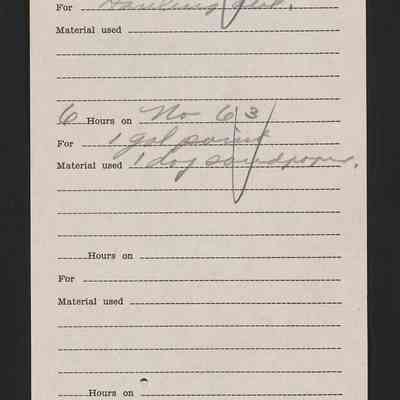 For Hauling
Material used
6 Hours on No 63
For 1 gal paint
Material used 1 doz sandpaper.
Hours on
For
Material used
Hours on